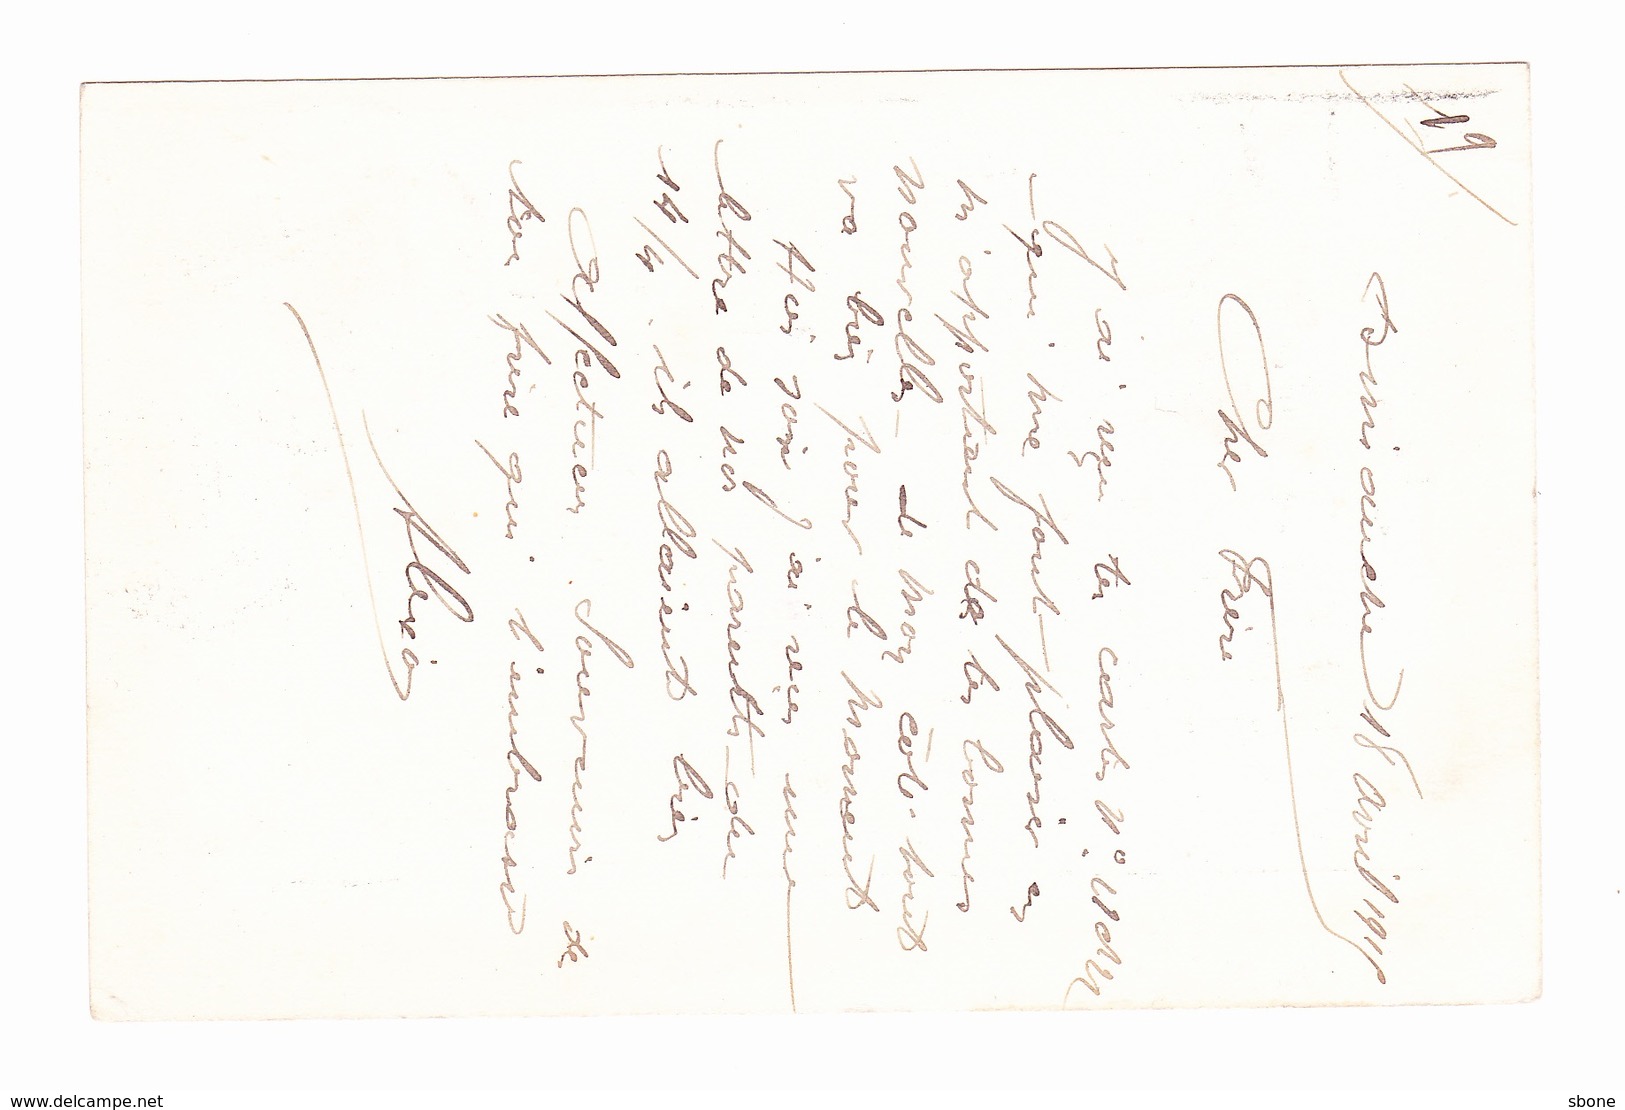 19
Dimanche 18 avril 1915
Cher Frère
J'ai reçu tes cartes n°
qui me font plaisir en
m'apportant de tes bonnes
nouvelles de moy coté tout
va bien pour le moment
Hier soir j'ai reçu une
lettre de nos parents du
14/4. ils allaient bien
Affectueux Souvenir de
ton frère qui t'embrasse
Alexis
www.delcampe.net
sbone